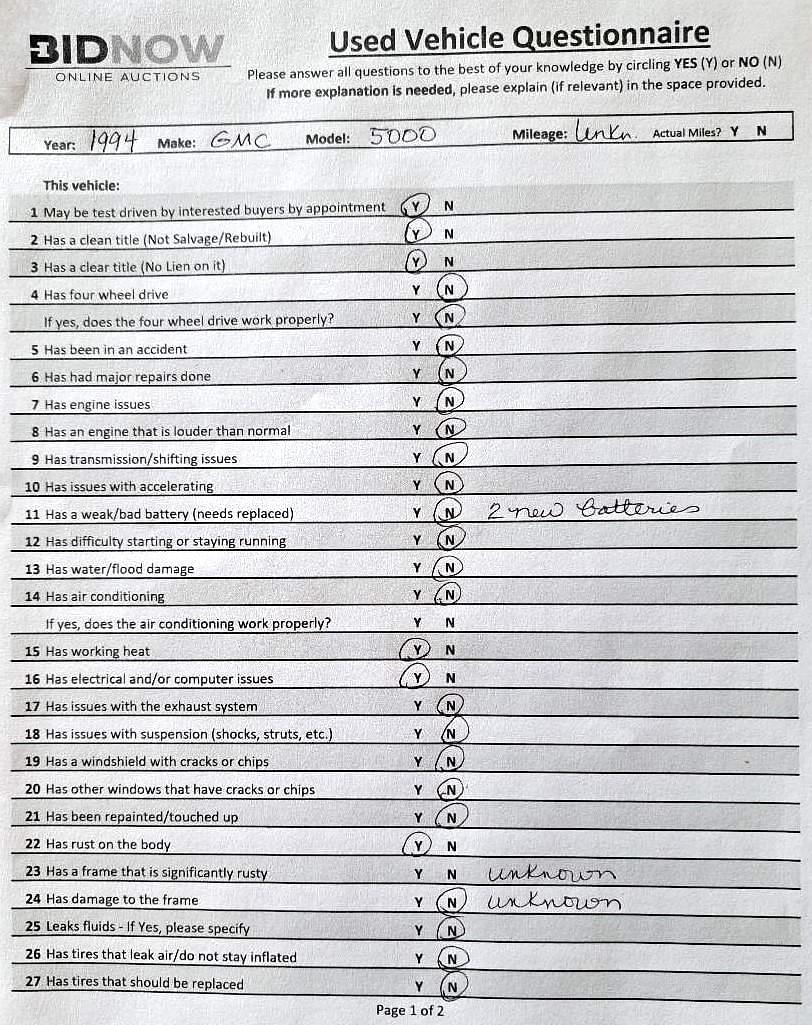 BIDNOW
ONLINE AUCTIONS
Used Vehicle Questionnaire
Please answer all questions to the best of your knowledge by circling YES (Y) or NO (N)
If more explanation is needed, please explain (if relevant) in the space provided.
Year: 1994 Make: GMC Model: 5000 Mileage: Unkn. Actual Miles? Y N
This vehicle:
1 May be test driven by interested buyers by appointment Y N
2 Has a clean title (Not Salvage/Rebuilt) Y N
3 Has a clear title (No Lien on it) Y N
4 Has four wheel drive Y N
If yes, does the four wheel drive work properly? Y N
5 Has been in an accident Y N
6 Has had major repairs done Y N
7 Has engine issues Y N
8 Has an engine that is louder than normal Y N
9 Has transmission/shifting issues Y N
10 Has issues with accelerating Y N
11 Has a weak/bad battery (needs replaced) Y N 2 new batteries
12 Has difficulty starting or staying running Y N
13 Has water/flood damage Y N
14 Has air conditioning Y N
If yes, does the air conditioning work properly? Y N
15 Has working heat Y N
16 Has electrical and/or computer issues Y N
17 Has issues with the exhaust system Y N
18 Has issues with suspension (shocks, struts, etc.) Y N
19 Has a windshield with cracks or chips Y N
20 Has other windows that have cracks or chips Y N
21 Has been repainted/touched up Y N
22 Has rust on the body Y N
23 Has a frame that is significantly rusty Y N unknown
24 Has damage to the frame Y N unknown
25 Leaks fluids - If Yes, please specify Y N
26 Has tires that leak air/do not stay inflated Y N
27 Has tires that should be replaced Y N
Page 1 of 2